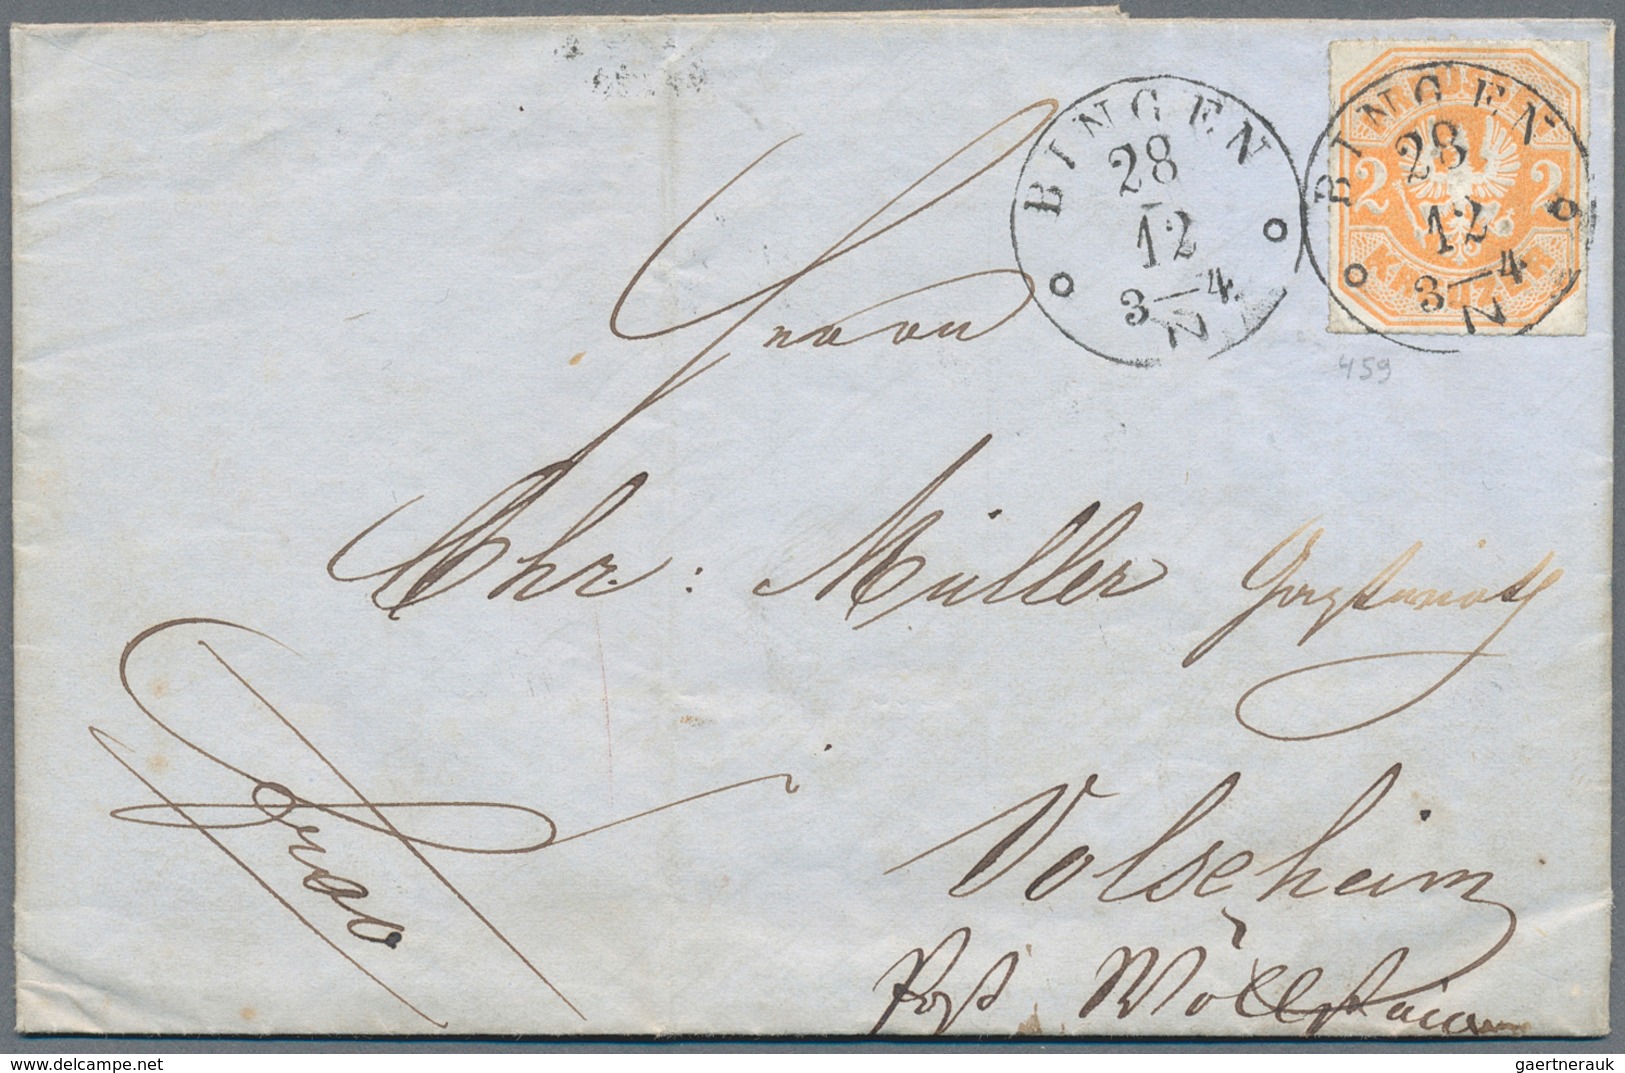 BINGEN
28
12
3—4 N
BINGEN
28
12
3—4 N
KREUZER
2 2
KREUZER
459
Herrn
Chr: Müller
franco
Volxheim
Post Wöllstein
delcampe.net
gaertnerauk